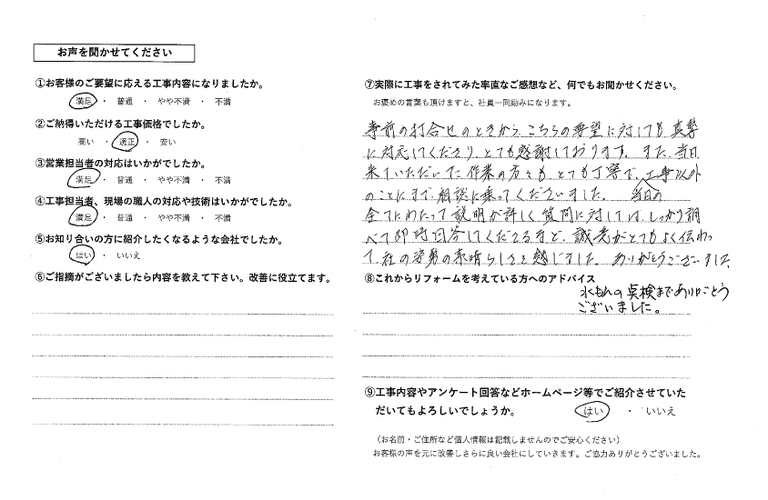 お声を聞かせてください
①お客様のご要望に応える工事内容になりましたか。
満足 ・ 普通 ・ やや不満 ・ 不満
②ご納得いただける工事価格でしたか。
高い ・ 適正 ・ 安い
③営業担当者の対応はいかがでしたか。
満足 ・ 普通 ・ やや不満 ・ 不満
④工事担当者、現場の職人の対応や技術はいかがでしたか。
満足 ・ 普通 ・ やや不満 ・ 不満
⑤お知り合いの方に紹介したくなるような会社でしたか。
はい ・ いいえ
⑥ご指摘がございましたら内容を教えて下さい。改善に役立てます。
⑦実際に工事をされてみた率直なご感想など、何でもお聞かせください。
お褒めの言葉も頂けますと、社員一同励みになります。
事前の打合せのときから、こちらの要望に対しても、真摯
に対応してくださり、とても感謝しております。また、当日
来ていただいた作業の方々も、とても丁寧で、工事以外
のことにまで相談に乗ってくださいました。 当日の
全てにわたって説明が詳しく質問に対しては、しっかり調
べて即時回答してくださるなど、誠意がとてもよく伝わっ
て、社の姿勢の素晴らしさを感じました。ありがとうございました。
⑧これからリフォームを考えている方へのアドバイス
水もれの点検までありがとう
ございました。
⑨工事内容やアンケート回答などホームページ等でご紹介させていた
だいてもよろしいでしょうか。 はい ・ いいえ
（お名前・ご住所など個人情報は記載しませんのでご安心ください）
お客様の声を元に改善しさらに良い会社にしていきます。ご協力ありがとうございました。